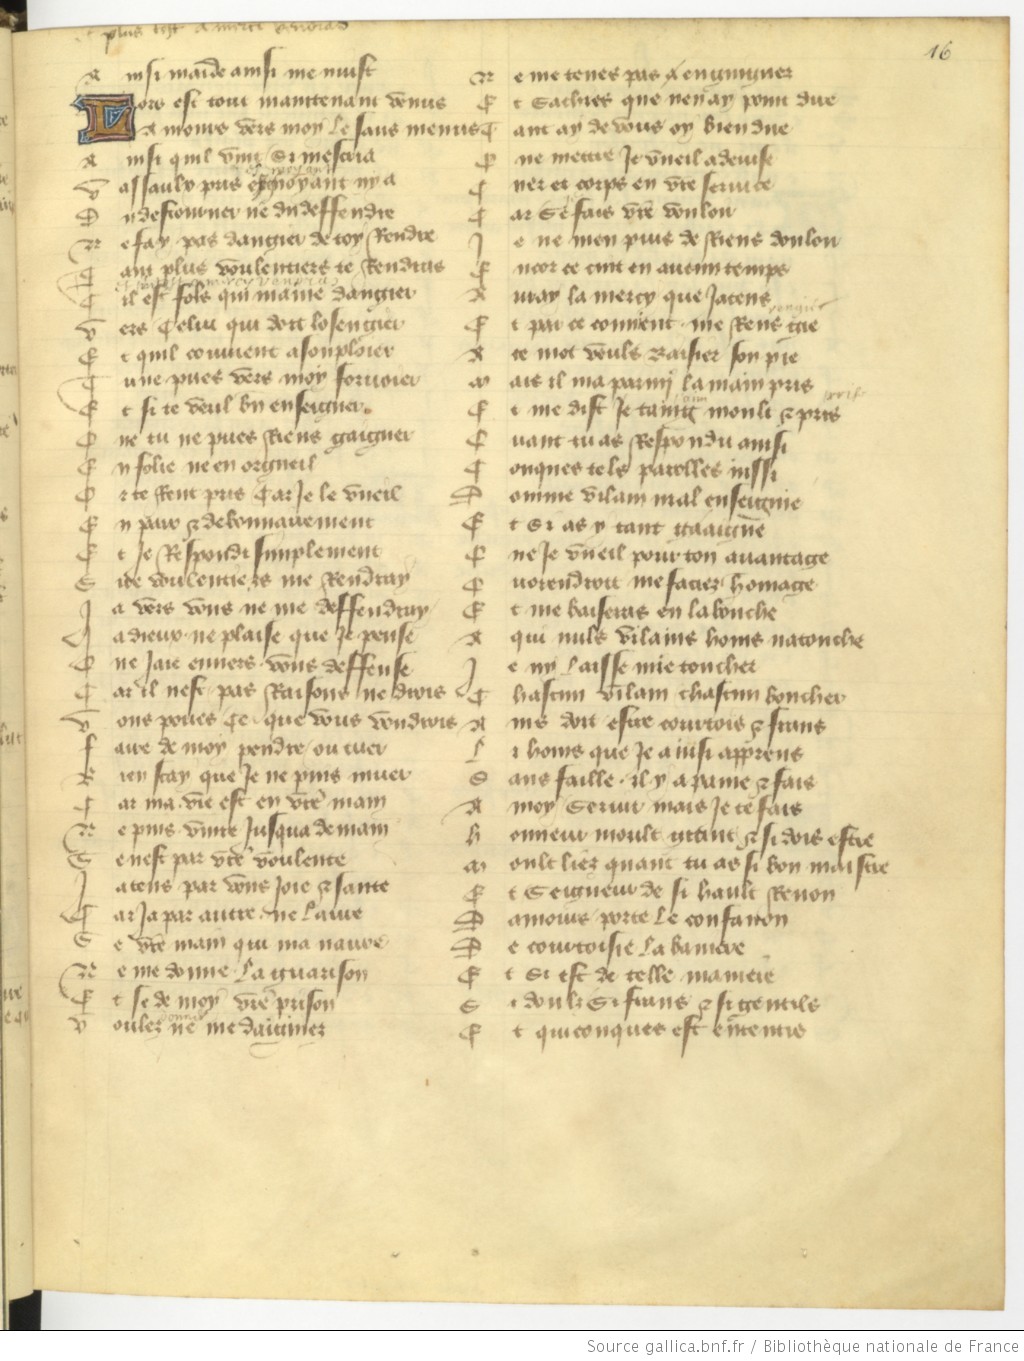 plus tost a merci vendras
16
A insi maide ainsi me nuist
L ors est tout maintenant venus
A mours vers moy le saus menus
A insi quil vint si mescria
V assaulx pris es noyant ny a
D u destourner ne du deffendre
N e fay pas dangier de toy Rendre
C ant plus voulentiers te Rendras
C il est fols qui maine dangier
V ers Celui qui doit losengier
E t quil convient asouploier
T u ne pues vers moy forvoier
E t si te veul bn enseigner
Q ne tu ne pues Riens gaigner
E n folie ne en orgueil
O r te Rent pris Car Je le vueil
E n paix & debonnairement
E t Je Respondi simplement
S ire voulentiers me Rendray
J a vers vous ne me deffendray
J a dieux ne plaise que Je pense
Q ne Jaie envers vous deffense
C ar il nest pas Raisons ne drois
V ous poues Ce que vous voudrois
F aire de moy pendre ou tuer
B ien scay que Je ne puis muer
C ar ma vie est en vre main
N e puis vivre Jusqua demain
S e nest par vre voulente
J atens par vous Joie & sante
C ar Ja par autre ne laure
S e vre main qui ma navre
N e me donne la guarison
E t se de moy vre prison
V oulez ne me daignez
N e me tenes pas a engingner
E t Sachies que nen ay point due
T ant ay de vous oy bien due
Q ne mettre Je vueil a devise
C uer et corps en vre service
C ar Se fais vre voulou
J e ne men puis de Riens doulou
E ncor ce cuit en aucun temps
A vray la mercy que Jatens
E t par ce convent me Rens gie
A ce mot veuls Baisier son pie
M ais il ma parmy la main pris
E t me dist Je taing moult & pris
Q uant tu as Respondu ainsi
C onques tels parolles nissi
D omme vilain mal enseignie
E t Si as y tant gaaigne
Q ne Je vueil pour ton avantage
Q uorendroit me faciez homage
E t me baiseras en la bouche
A qui nuls vilains homs natouche
J e ny laisse mie toucher
C hascun vilain chascun boucher
A ins doit estre courtois & frans
L i homs que Je ainsi apprens
S ans faille il y a paine & fais
A moy Servir mais Je te fais
H onneur moult grant & si dois estre
M oult liez quant tu as si bon maistre
E t Seigneur de si hault Renon
D amours porte le confanon
D e courtoisie la baniere
E t Si est de telle maniere
S i doulz Si frans & si gentils
E t quiconques est ententis
Source gallica.bnf.fr / Bibliothèque nationale de France